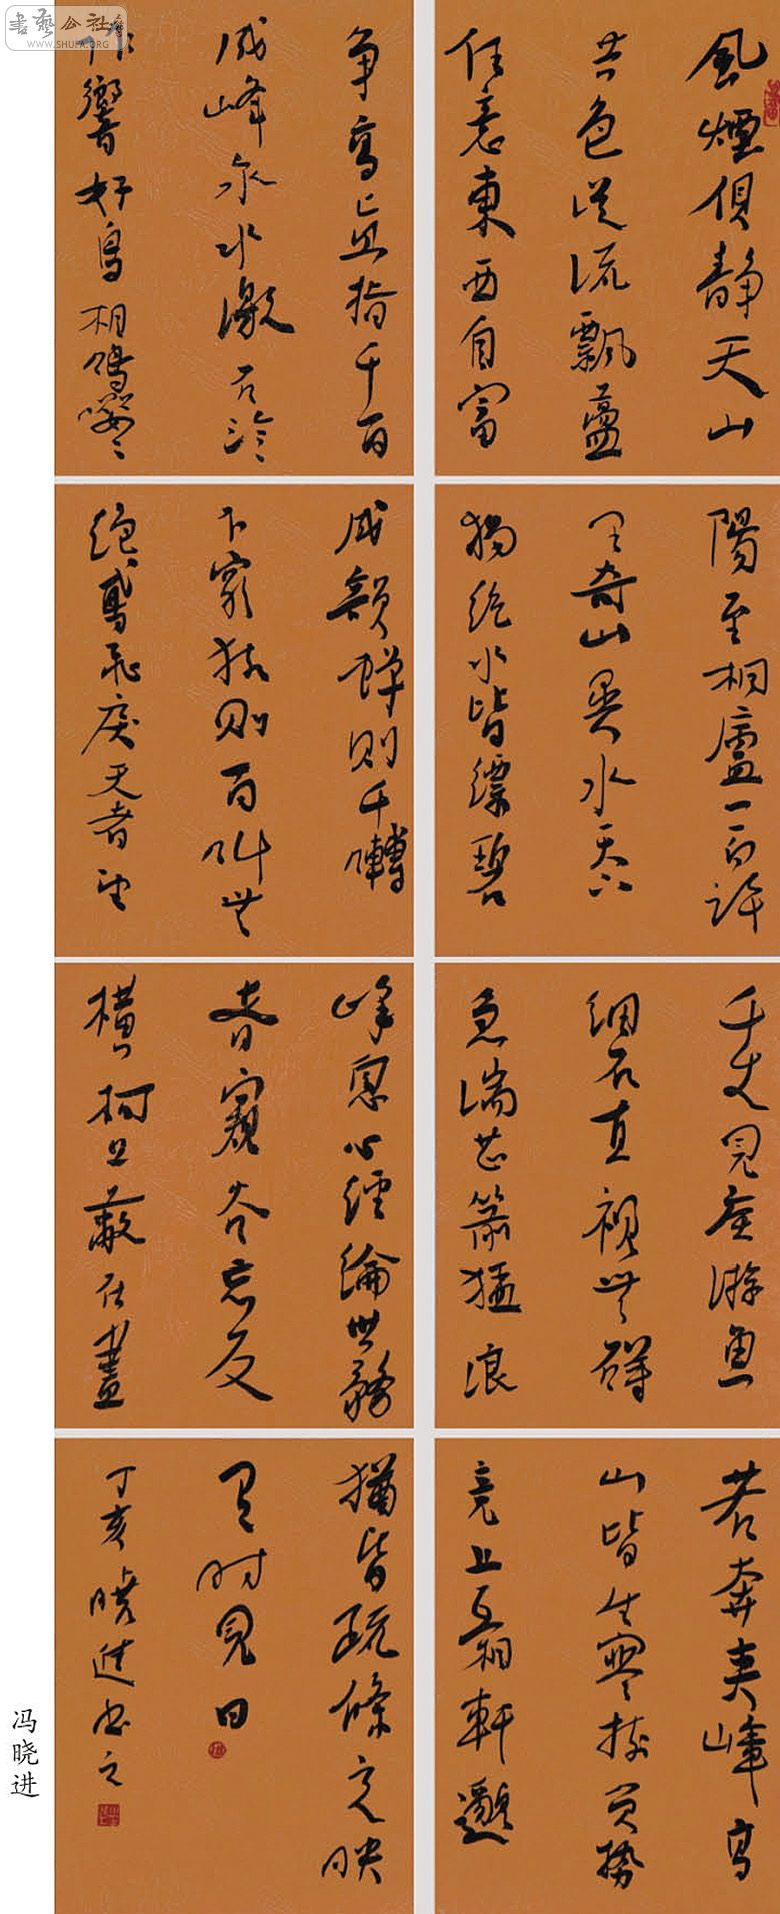 風煙俱静天山
共色從流飄盪
任意東西自富
陽至桐廬一百許
里奇山異水天下
獨絶水皆縹碧
千丈見底游魚
細石直視無礙
急湍甚箭猛浪
若奔夾峰高
山皆生寒樹負勢
競上互相軒邈
争高直指千百
成峰泉水激石泠〻
作響好鳥相鳴嚶〻
成韻蟬則千囀
不窮猿則百叫無
絶鳶飛戾天者望
峰息心經綸世務
者窺谷忘反
横柯上蔽在晝
猶昏疏條交映
有時見日
丁亥曉進書之
冯晓进
書藝公社
WWW.SHUFA.ORG